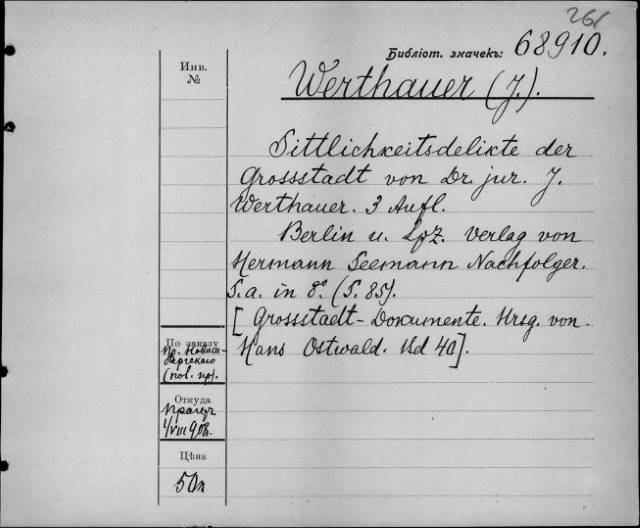 261
Библіот. значекъ: 68910.
Инв.
№
Werthauer (J.).
Sittlichkeitsdelikte der
Grossstadt von Dr. jur. J.
Werthauer. 3 Aufl.
Berlin u. Lpz. Verlag von
Hermann Seemann Nachfolger.
S.a. in 8º. (S. 85).
[Grossstadt-Dokumente. Hrsg. von
Hans Ostwald. Bd 40].
По заказу
Пр.
Откуда
1/VIII 908.
Цѣна
50